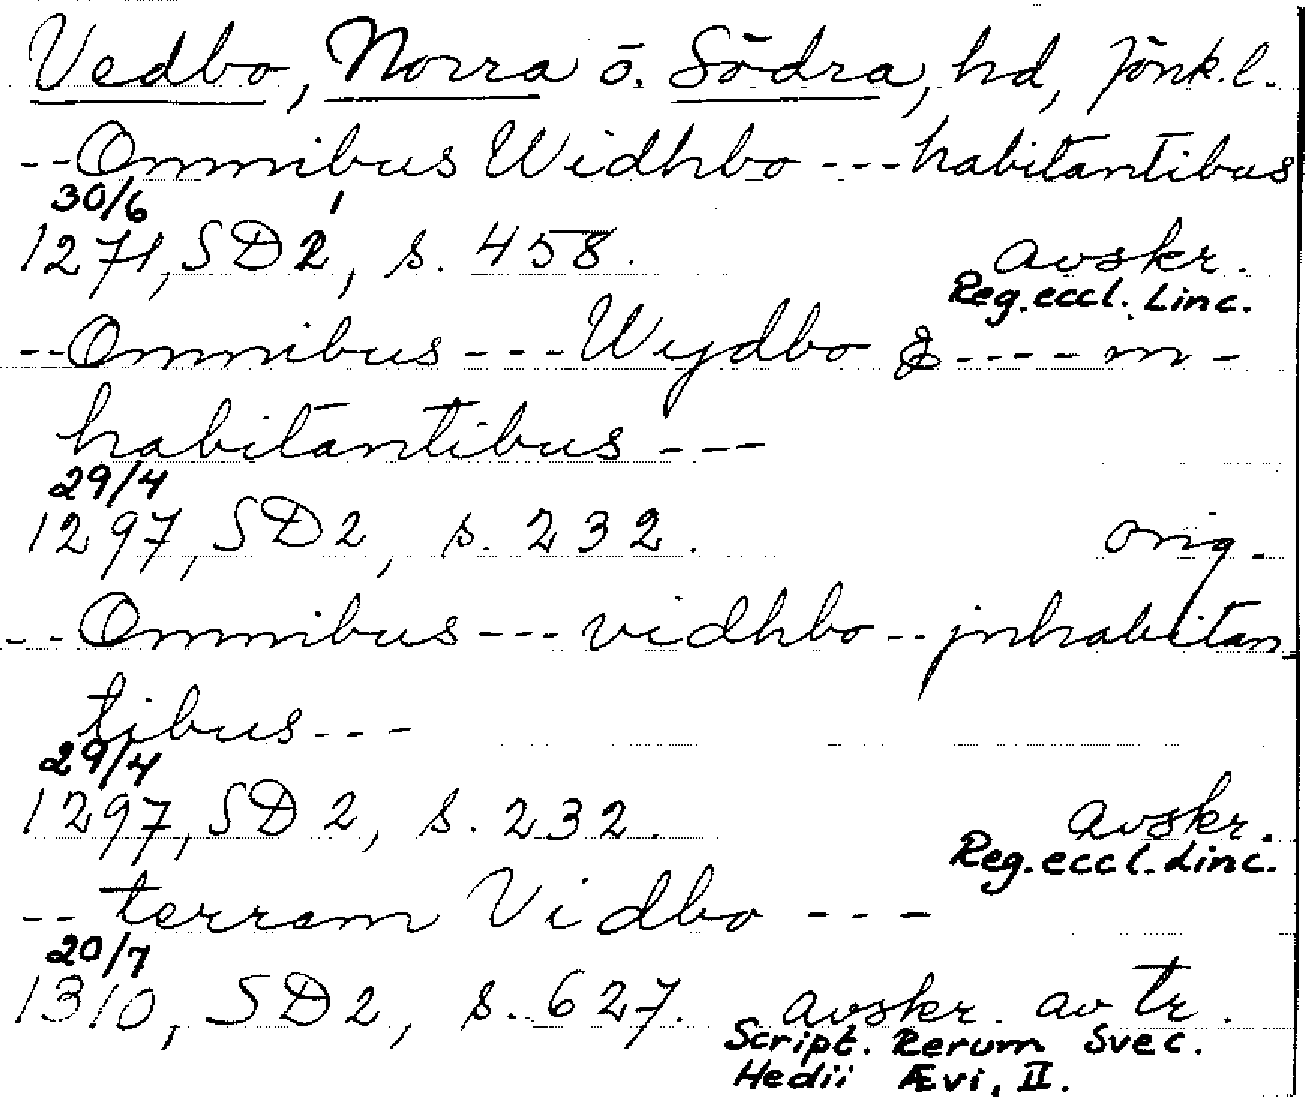 Vedbo, Norra o. Södra, hd, Jönk. l.
-- Omnibus Widhbo --- habitantibus
30/6 1
1271, SD 2, s. 458. avskr.
Reg. eccl. Linc.
-- Omnibus --- Wydbo & ---- in -
habitantibus ---
29/4
1297, SD 2, s. 232. orig.
--- Omnibus --- vidhbo -- jnhabitan_
tibus ---
29/4
1297, SD 2, s. 232. avskr.
Reg. eccl. Linc.
-- terram Vidbo ---
20/7
1310, SD 2, s. 627. avskr. av tr.
Script. Rerum Svec.
Medii Ævi, II.